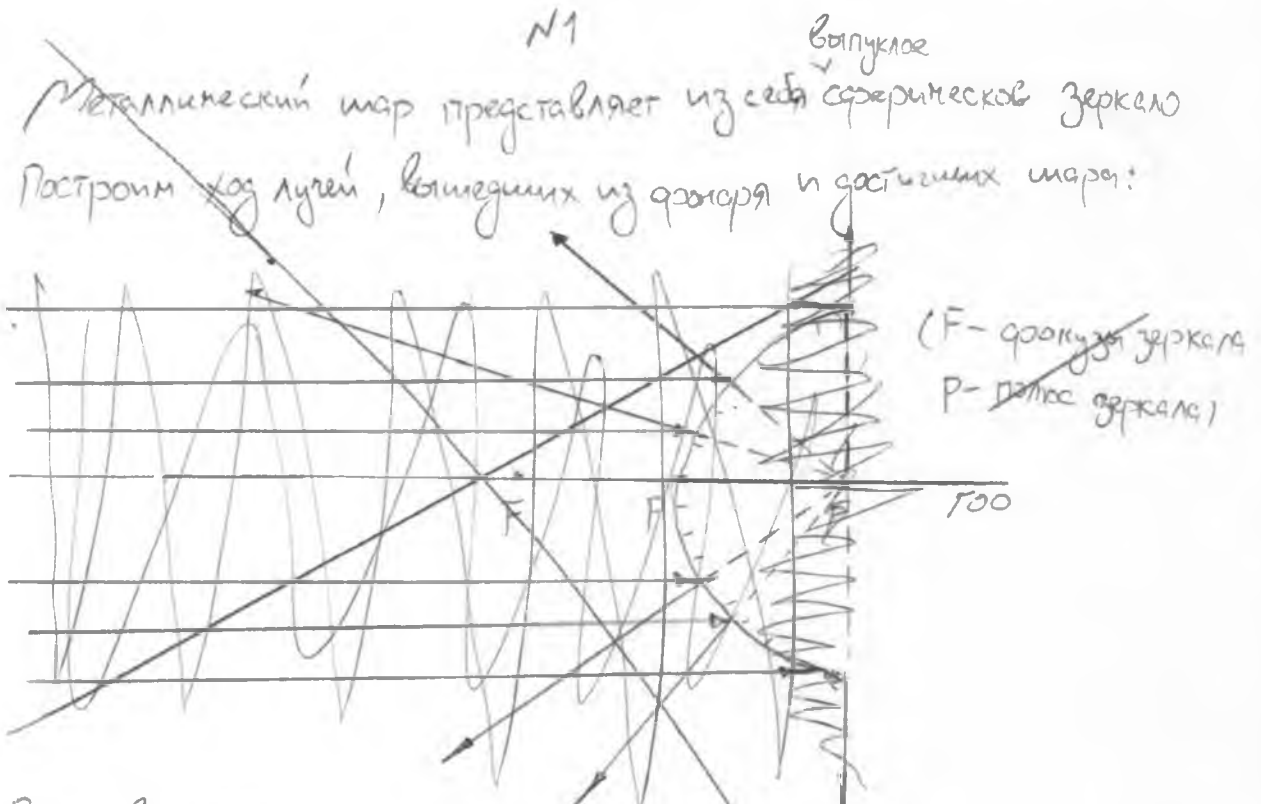 №1
выпуклое
Металлический шар представляет из себя сферическое зеркало
Построим ход лучей, вышедших из фонаря и достигших шара:
(F - фокусы зеркала
P - полюс зеркала)
F
P
ГОО